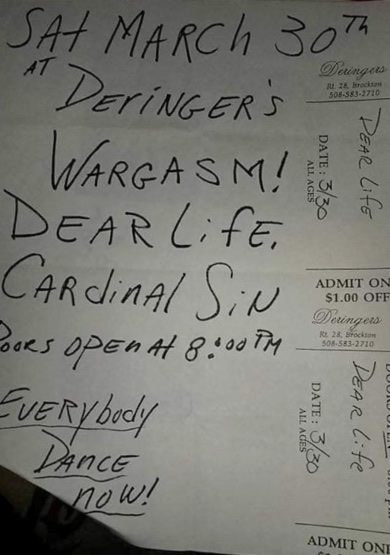 SAT MARCH 30TH
AT DERINGER'S
WARGASM!
DEAR LiFE,
CARdiNAl SiN
DOORS OPEN At 8:00 PM
EVERYbody
DANCE
NOW!
Deringers
Rt. 28, Brockton
508-583-2710
DEAR LifE
DATE: 3/30
ALL AGES
ADMIT ON
$1.00 OFF
Deringers
Rt. 28, Brockton
508-583-2710
DEAR LifE
DATE: 3/30
ALL AGES
ADMIT ON